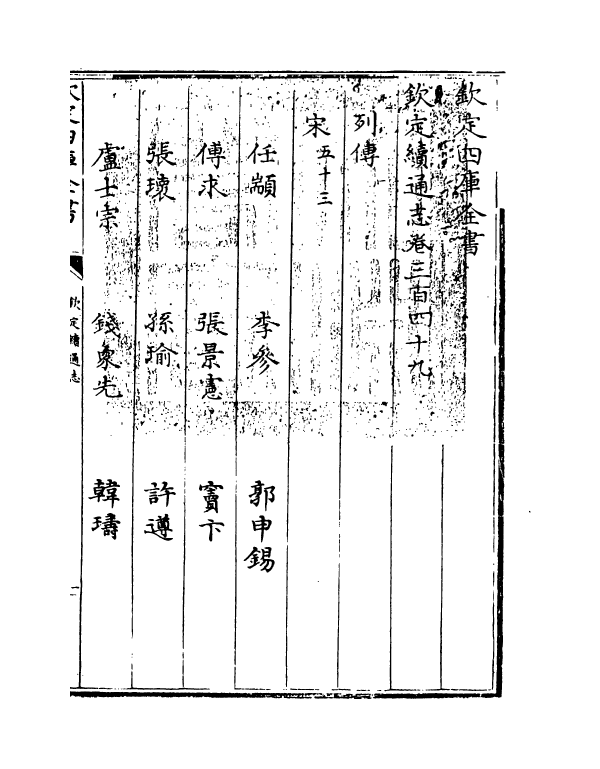 欽定四庫全書
欽定續通志卷三百四十九
列傳
宋五十三
任顓 李參 郭申錫
傅求 張景憲 竇卞
張瓌 孫瑜 許遵
盧士宗 錢象先 韓璹
欽定四庫全書
欽定續通志
一